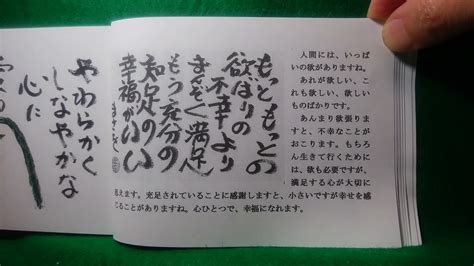 やわらかく
しなやかな
心に
もっともっとの
欲ばりの
不幸より
まんぞく満足
もう充分の
知足の
幸福がいい
人間には、いっぱ
いの欲がありますね。
あれが欲しい、これ
も欲しい、欲しい
ものばかりです。
あんまり欲張りま
すと、不幸なことが
おこります。もちろ
ん生きて行くために
は、欲も必要ですが、
満足する心が大切に
思えます。充足されていることに感謝しますと、小さいですが幸せを感
じることがありますね。心ひとつで、幸福になれます。